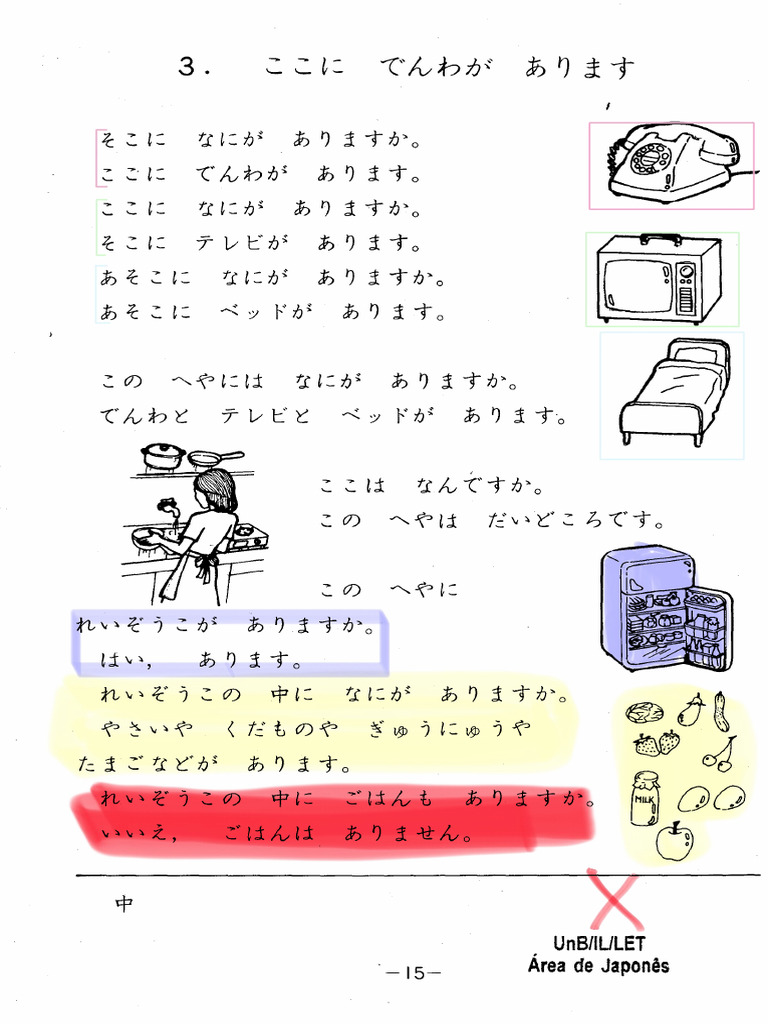 3. ここに でんわが あります
そこに なにが ありますか。
ここに でんわが あります。
ここに なにが ありますか。
そこに テレビが あります。
あそこに なにが ありますか。
あそこに ベッドが あります。
この へやには なにが ありますか。
でんわと テレビと ベッドが あります。
ここは なんですか。
この へやは だいどころです。
この へやに
れいぞうこが ありますか。
はい, あります。
れいぞうこの 中に なにが ありますか。
やさいや くだものや ぎゅうにゅうや
たまごなどが あります。
MILK
れいぞうこの 中に ごはんも ありますか。
いいえ, ごはんは ありません。
中
UnB/IL/LET
Área de Japonês
—15—